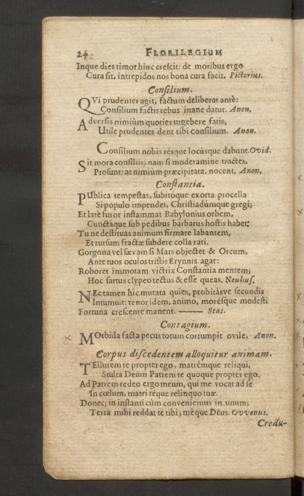 24 FLORILEGIUM
Inque dies timor hinc crescit: de moribus ergo
Cura sit, intrepidos nos bona cura facit. Pictorius.
Consilium.
QVi prudenter agit, factum deliberat antè:
Consilium factis rebus inane datur. Anon.
Adversis nimiùm quoties urgebere fatis,
Utile prudentes dent tibi consilium. Anon.
Consilium nobis résque locúsque dabunt. Ovid.
Sit mora consiliis; nam si moderamine tractes,
Prosunt: at nimiùm præcipitata, nocent. Anon.
Constantia.
PUblica tempestas, subitóque exorta procella
Si populo impendet, Christiadûmque gregi;
Et latè furor inflammat Babylonius orbem,
Cunctáque sub pedibus barbarus hostis habet:
Tu ne destituas animum firmare labantem,
Et rursum fractæ subdere colla rati.
Gorgona vel sævam si Mars objectet & Orcum,
Ante tuos oculos tristis Erynnis agat:
Roboret immotam victrix Constantia mentem;
Hoc sartus clypeo tectus & esse queas. Neuhus.
NEc tamen hic mutata quies, probitásve secundis
Intumuit: tenor idem, animo, morésque modesti
Fortuna crescente manent. ——— Stat.
Contagium.
MOrbida facta pecus totum corrumpit ovile. Anon.
Corpus discedentem alloquitur animam.
TEllurem te propter ego, matrémque reliqui,
Stulta Deum Patrem te quoque propter ego.
Ad Patrem redeo ergo meum, qui me vocat ad se
In cœlum, matri téque relinquo tuæ.
Donec, in instanti cùm conveniemus in unum,
Terra mihi reddat te tibi, méque Deus. Owenus.
Credu-